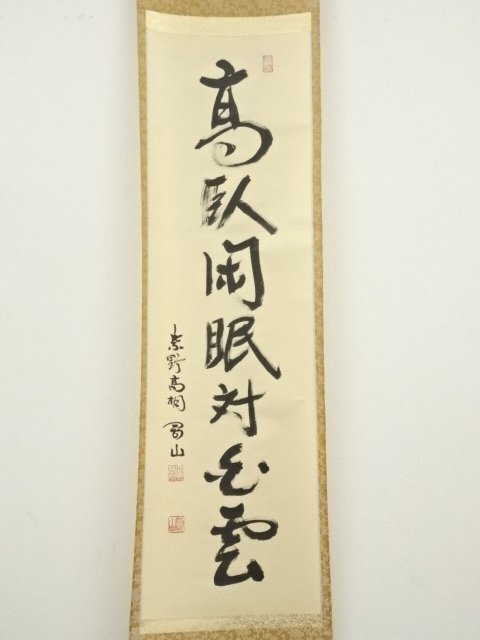 高臥閑眠対白雲
紫野高桐 蜀山